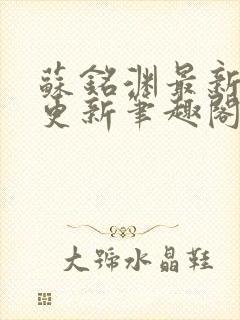 蘇銘淵最新
更新筆趣閣
大號水晶鞋